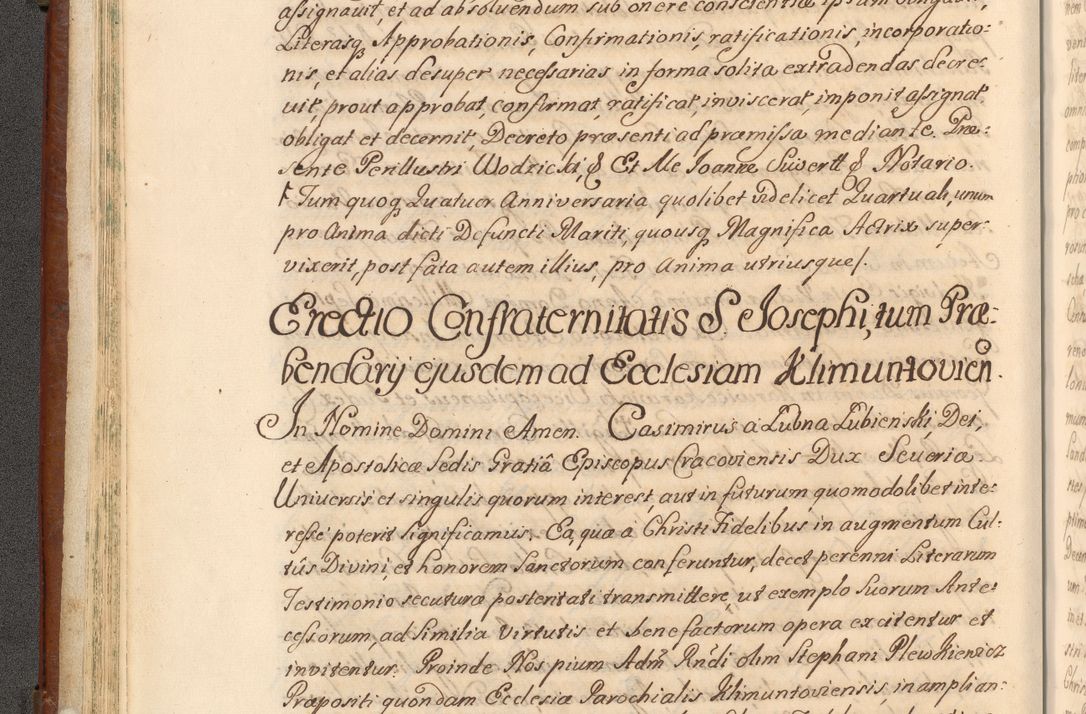 assignavit, et ad absolvendum sub onere conscientiæ ipsum
Literasq, Approbationis, Confirmationis, ratificationis, incorporatio-
nis, et alias desuper necessarias in forma solita extradendas decre-
vit, prout approbat, confirmat, ratificat, inviscerat, imponit assignat,
obligat et decernit, Decreto præsenti ad præmissa mediante. Præ-
sente Perillustri Wodzicki, & Et Me Joanne Suwertt & Notario.
Tum quoq Quatuor Anniversaria quolibet videlicet Quartuali, unum
pro Anima dicti Defuncti Mariti, quousq Magnifica Actrix super-
vixerit, post fata autem illius, pro Anima utriusque/.
Erectio Confraternitatis S. Josephi, tum Præ-
bendarij ejusdem ad Ecclesiam Klimuntovien.
In Nomine Domini Amen. Casimirus à Lubna Lubieński, Dei,
et Apostolicæ Sedis Gratiâ Episcopus Cracoviensis Dux Severiæ
Universis et singulis quorum interest, aut in futurum quomodolibet inte-
resse poterit significamus. Ea, quæ à Christi Fidelibus in augmentum Cul-
tûs Divini, et honorem Sanctorum conferuntur, decet perenni Literarum
Testimonio secuturæ posteritati transmittere, ut exemplo suorum Ante-
cessorum, ad similia virtutis et benefactorum opera excitentur et
invitentur. Proinde Nos pium Adm Rndi olim Stephani Plewkiewicz
Præpositi quondam Ecclesiæ Parochialis Klimuntoviensis, in amplian-